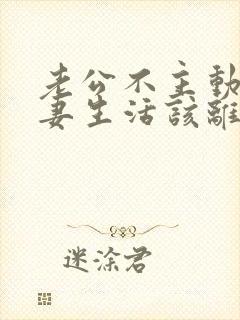 老公不主動
妻生活該離
迷涂君